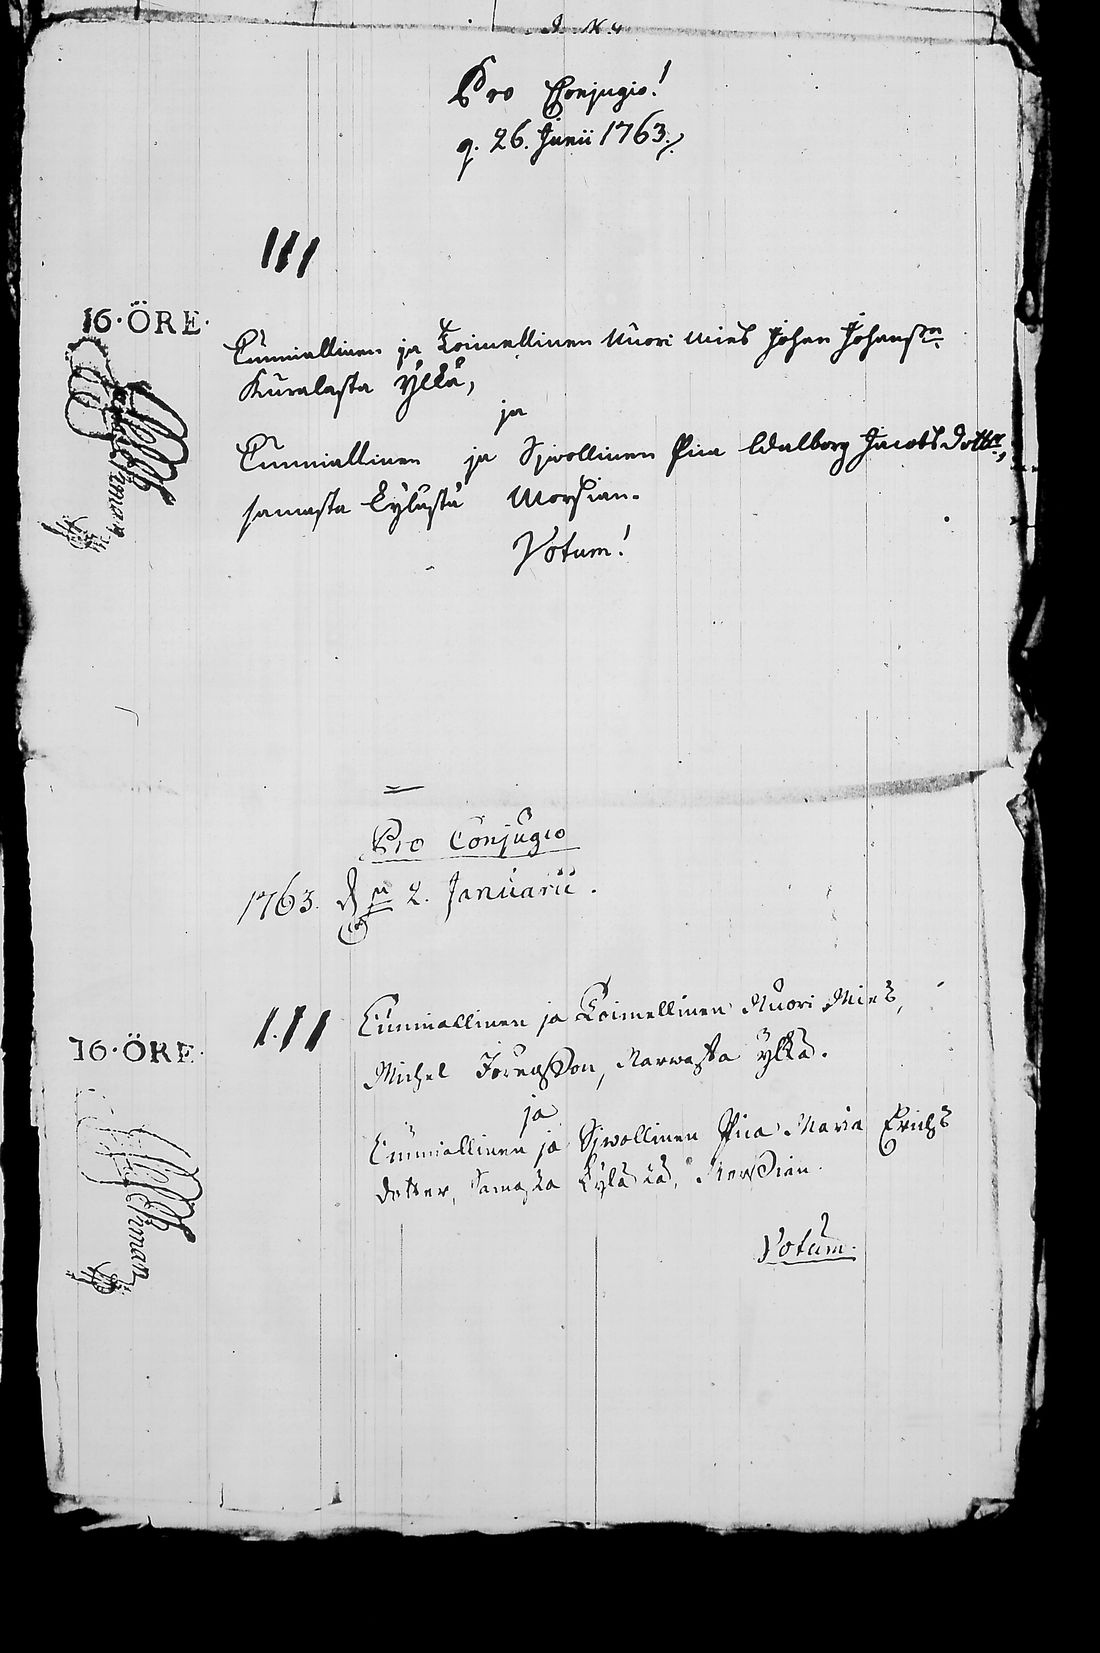 Pro Conjugio!
d. 26. Junii 1763.
III
16·ÖRE·
Cunniallinen ja Toimellinen Nuori Mies Johan Johanss:n
Kuralasta ÿldä,
ja
Cunniallinen ja Sjwollinen Pica Walborg Jacobs dott:r,
samasta Cylästä Morsian.
Votum!
Pro Conjugio
1763. d. 2. Januarii.
16·ÖRE·
I.II
Cunniallinen ja Toimellinen Nuori Mies,
Michel Jöransson, Narwasta ÿldä.
ja
Cunniallinen ja Sjwollinen Pica Maria Erichs
dotter, Samasta Cylästä, Morsian.
Votum.